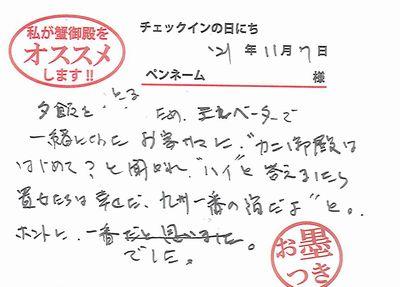 私が蟹御殿を
オススメ
します!!
チェックインの日にち
'21 年 11 月 7 日
ペンネーム 様
夕飯を とる ため、エレベーターで
一緒になった お客サマに、"カニ御殿は
はじめて?" と 聞かれ、"ハイ" と 答えましたら
貴女たちは 幸せだ、九州一番の 宿だよ" と。
ホントに、一番 だと思いました
でした。
お墨
つき